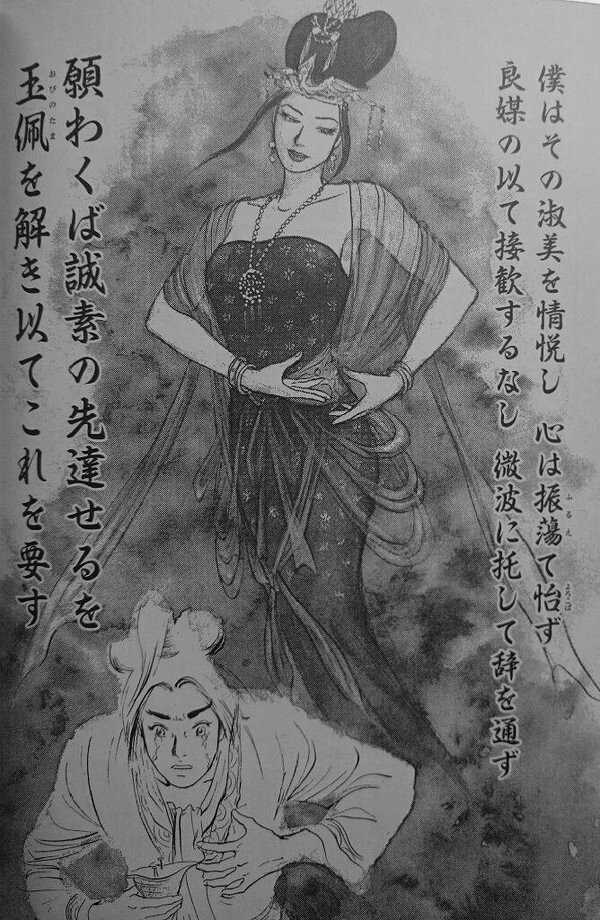 僕はその淑美を情悦し 心は振蕩て怡ず
良媒の以て接歓するなし 微波に托して辞を通ず
願わくば誠素の先達せるを
玉佩を解き以てこれを要す
ふるえ
よろこば
おびのたま